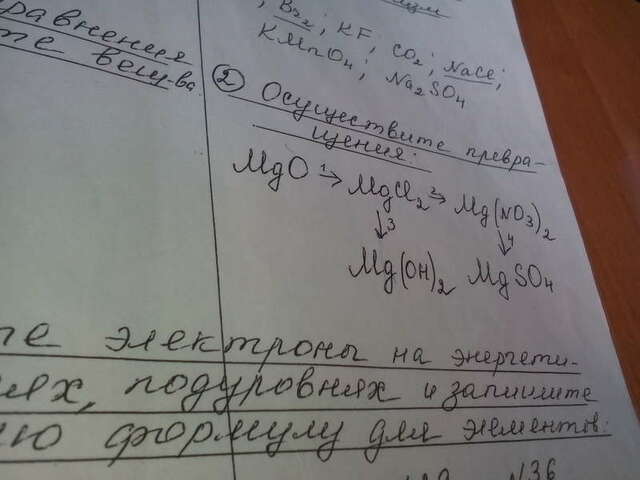 равнения
те вещ-ва.
Br₂; KF; CO₂; NaCl;
KMnO₄; Na₂SO₄
② Осуществите превра-
щения:
MgO →¹ MgCl₂ →² Mg(NO₃)₂
↓3 ↓4
Mg(OH)₂ MgSO₄
те электроны на энергети-
ях, подуровнях и запишите
ю формулу для элементов:
N36